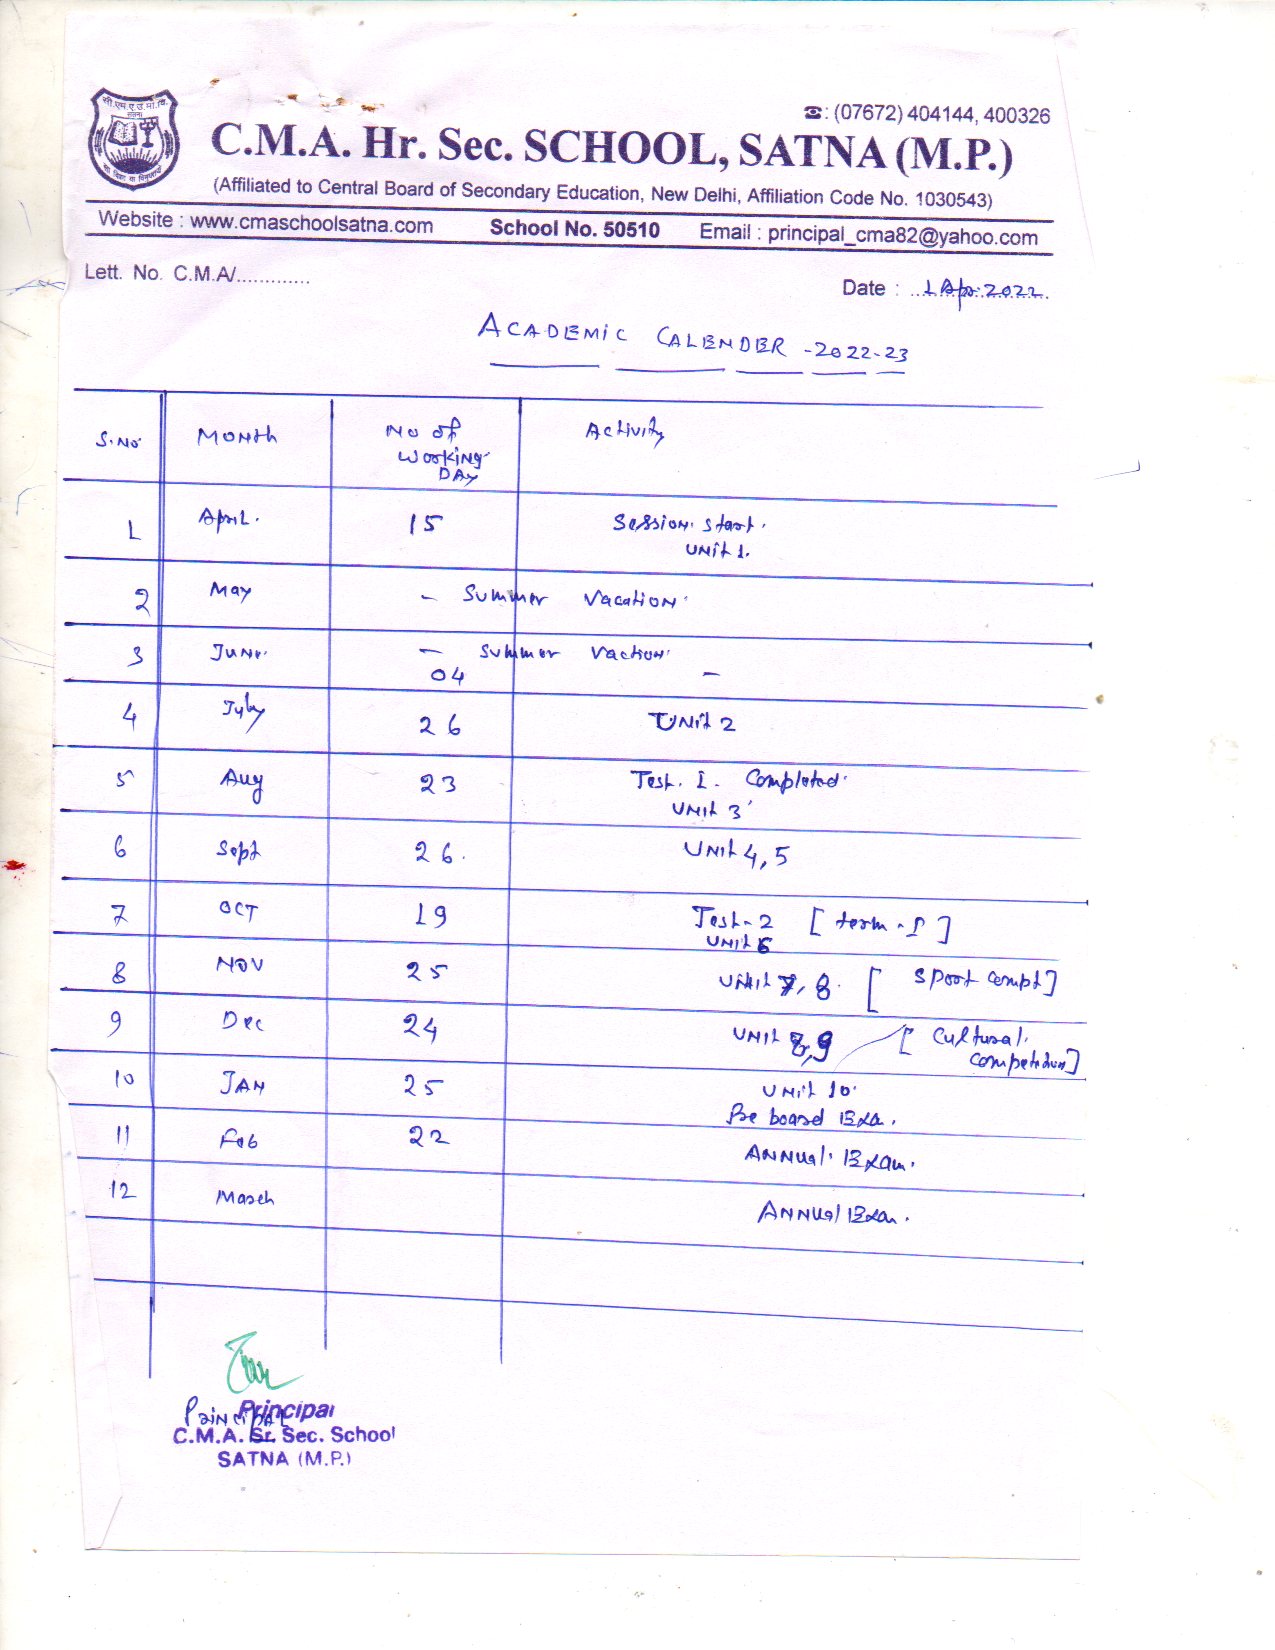 सी.एम.ए.उ.मा.वि.
सतना
☎: (07672) 404144, 400326
C.M.A. Hr. Sec. SCHOOL, SATNA (M.P.)
(Affiliated to Central Board of Secondary Education, New Delhi, Affiliation Code No. 1030543)
Website : www.cmaschoolsatna.com School No. 50510 Email : principal_cma82@yahoo.com
Lett. No. C.M.A/.............
Date : 1 Apr. 2022
ACADEMIC CALENDER - 2022-23
S.No. MONTH No of Activity
WORKING
DAY
1 April. 15 Session start.
UNit 1.
2 May - Summer Vacation
3 June - Summer Vaction
04 -
4 July 26 UNit 2
5 Aug 23 Test. I. Completed
UNit 3
6 Sept 26. UNit 4, 5
7 OCT 19 Test-2 [ term - I ]
UNit 6
8 NOV 25 UNit 7, 8. [ Sport Compt ]
9 Dec 24 UNit 8,9 [ Cultural
Competetion ]
10 JAN 25 UNit 10
Pre board Exa.
11 Feb 22 ANNUal Exam.
12 March ANNUal Exa.
Principal
Principal
C.M.A. Sr. Sec. School
SATNA (M.P.)